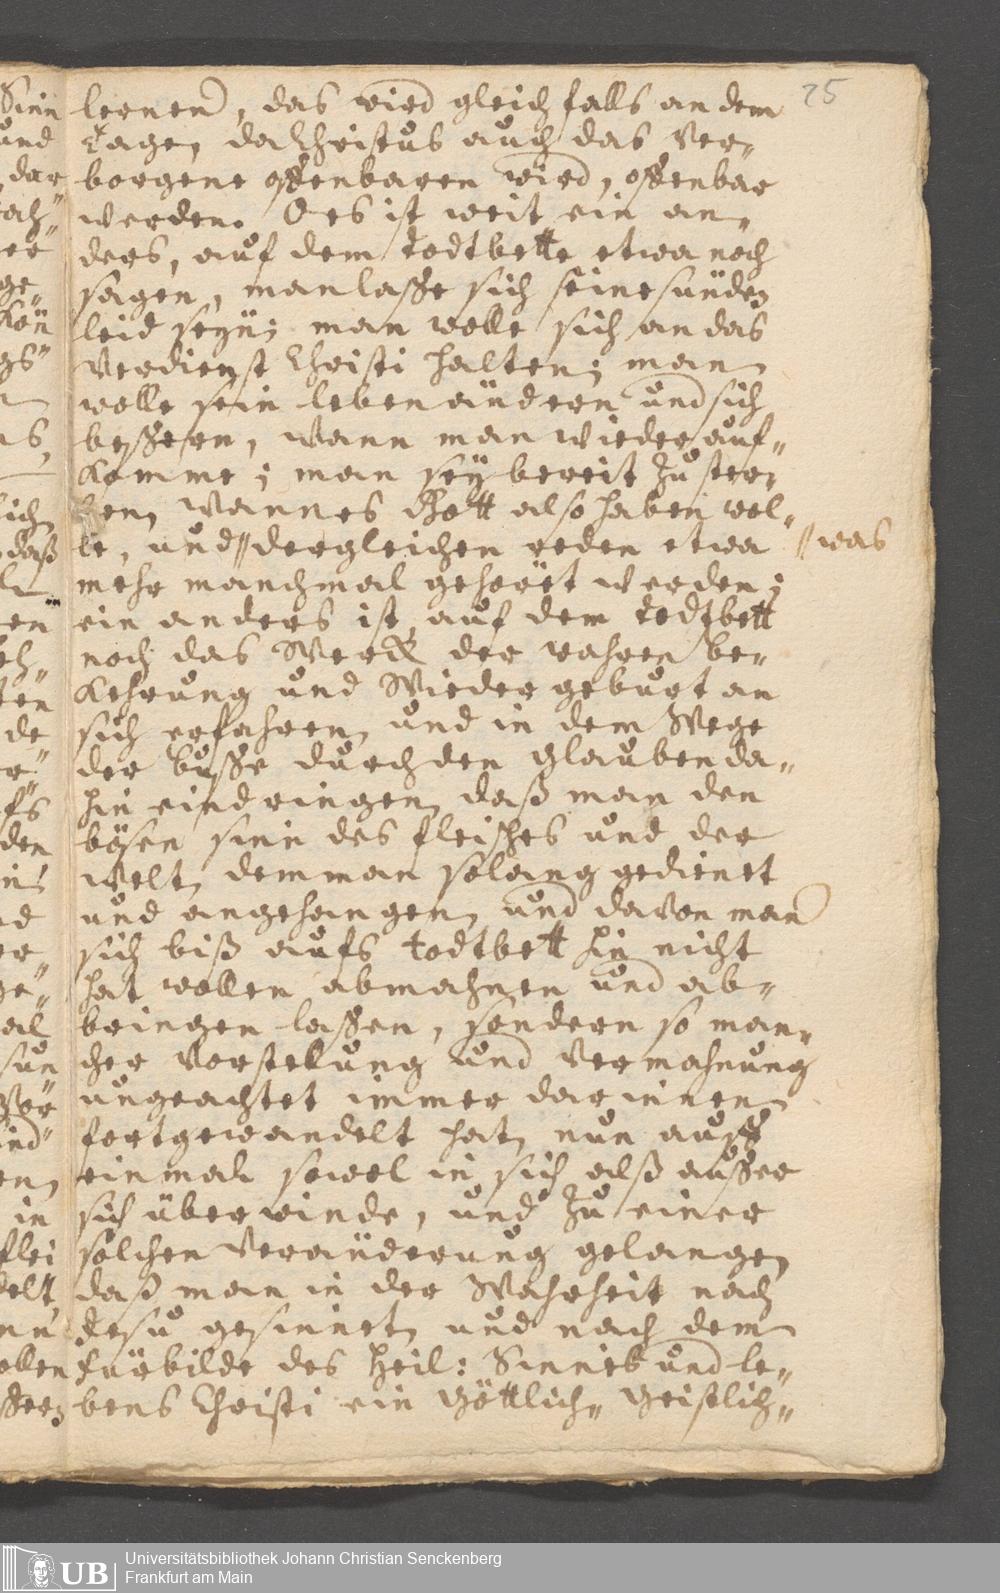 25
lernen, das wird gleich falls an dem
Tage, da Christus auch das ver„
borgene offenbaren wird, offenbar
werden. O es ist weit ein an„
ders, auf dem todtbette etwa noch
sagen, man lasse sich seine sünden
leid seyn; man wolle sich an das
Verdienst Christi halten; man
wolle sein leben ändern und sich
bessern, wann man wieder auf„
komme; man seÿ bereit zu ster„
ben, wann es Gott also haben wol„
le, und // dergleichen reden etwa // was
mehr manchmal gehöret werden;
ein anders ist, auf dem todtbett
noch das Werck der wahren be„
kehrung und Wiedergeburt an
sich erfahren, und in dem Wege
der busse durch den glauben da„
hin eindringen, daß man den
bösen sinn des fleisches und der
welt, dem man so lang gedienet
und angehangen, und davon man
sich biß aufs todtbett hin nicht
hat wollen abmahnen und ab„
bringen lassen, sondern so man„
cher Vorstellung und Vermahnung
ungeachtet immer darinnen
fortgewandelt hat, nun auff
einmal sowol in sich alß ausser
sich überwinde, und zu einer
solchen Veränderung gelange,
daß man in der Wahrheit nach
Jesu gesinnet, und nach dem
fürbilde des Heil: Sinnes und le„
bens Christi ein Göttlich„ Geistlich„
Universitätsbibliothek Johann Christian Senckenberg
Frankfurt am Main
UB